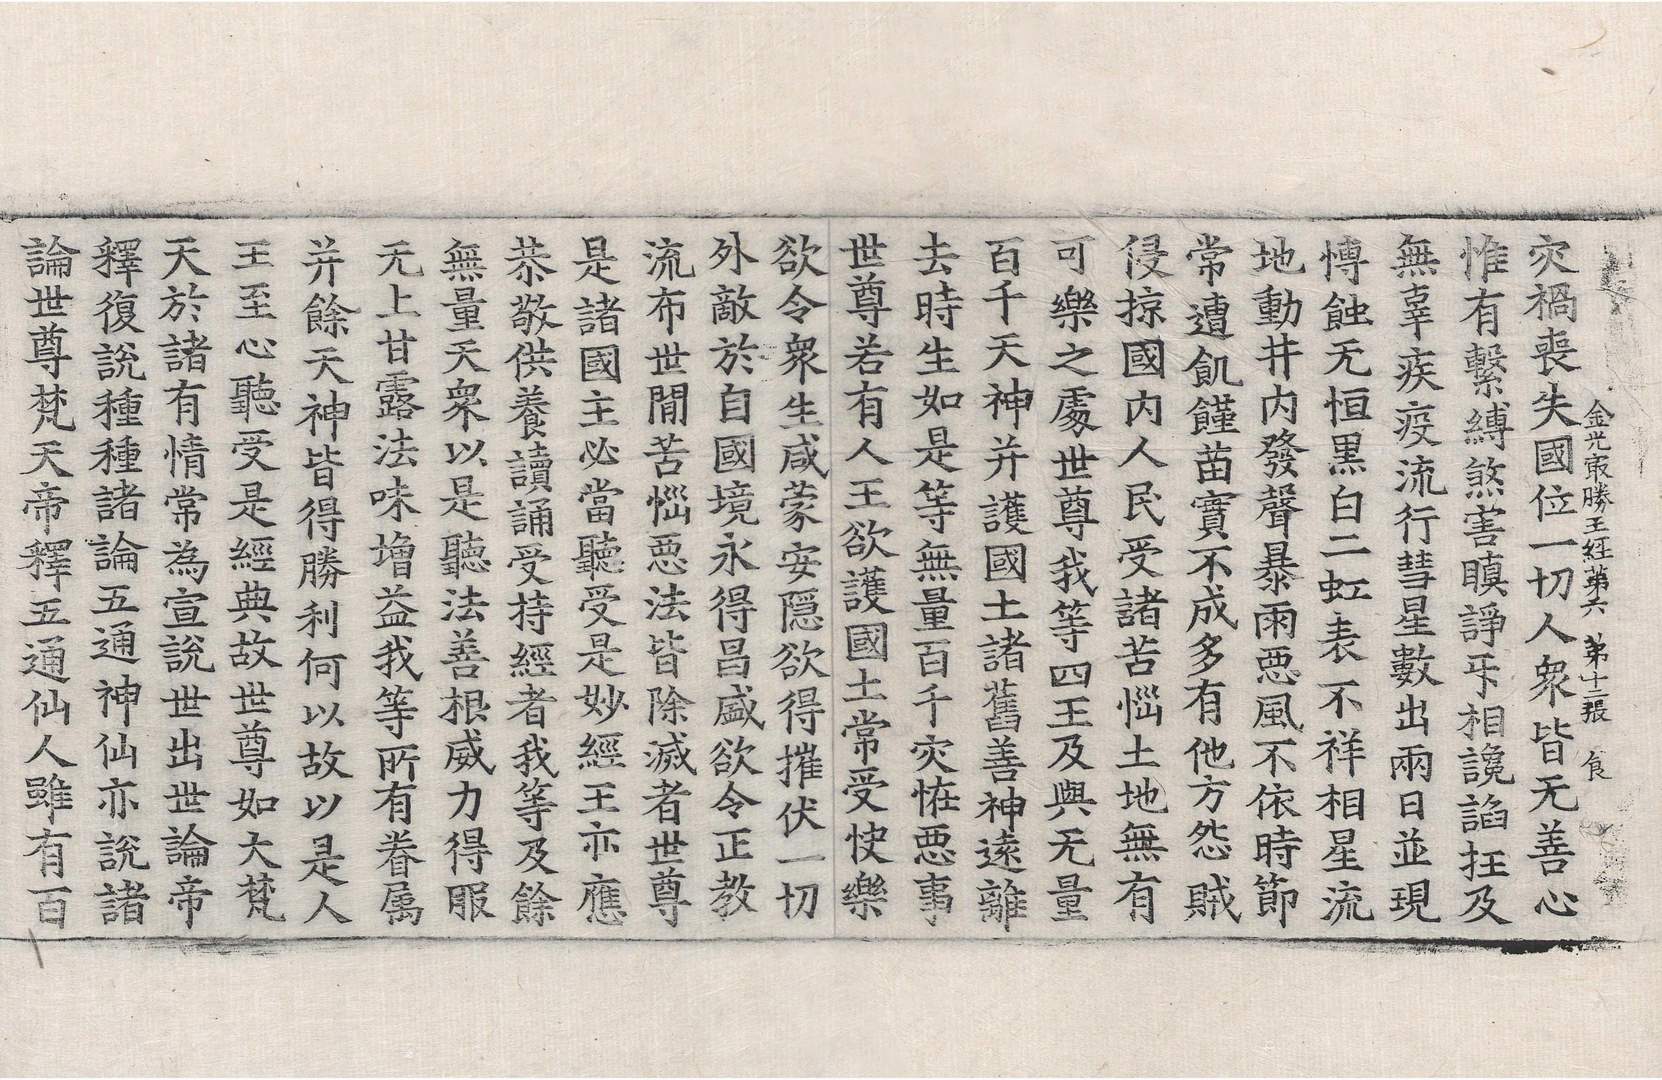 金光㝡勝王經第六 第十二張 食
灾禍喪失國位一切人衆皆无善心
惟有繫縛煞害瞋諍㸦相讒諂抂及
無辜疾疫流行彗星數出兩日並現
愽蝕无恒黑白二虹表不祥相星流
地動井内發聲暴雨惡風不依時節
常遭飢饉苗實不成多有他方怨賊
侵掠國内人民受諸苦惱土地無有
可樂之處世尊我等四王及與无量
百千天神并護國土諸舊善神遠離
去時生如是等無量百千灾恠惡事
世尊若有人王欲護國土常受快樂
欲令衆生咸蒙安隱欲得摧伏一切
外敵於自國境永得昌盛欲令正教
流布世間苦惱惡法皆除滅者世尊
是諸國主必當聽受是妙經王亦應
恭敬供養讀誦受持經者我等及餘
無量天衆以是聽法善根威力得服
无上甘露法味增益我等所有眷属
并餘天神皆得勝利何以故以是人
王至心聽受是經典故世尊如大梵
天於諸有情常為宣說世出世論帝
釋復說種種諸論五通神仙亦說諸
論世尊梵天帝釋五通仙人雖有百